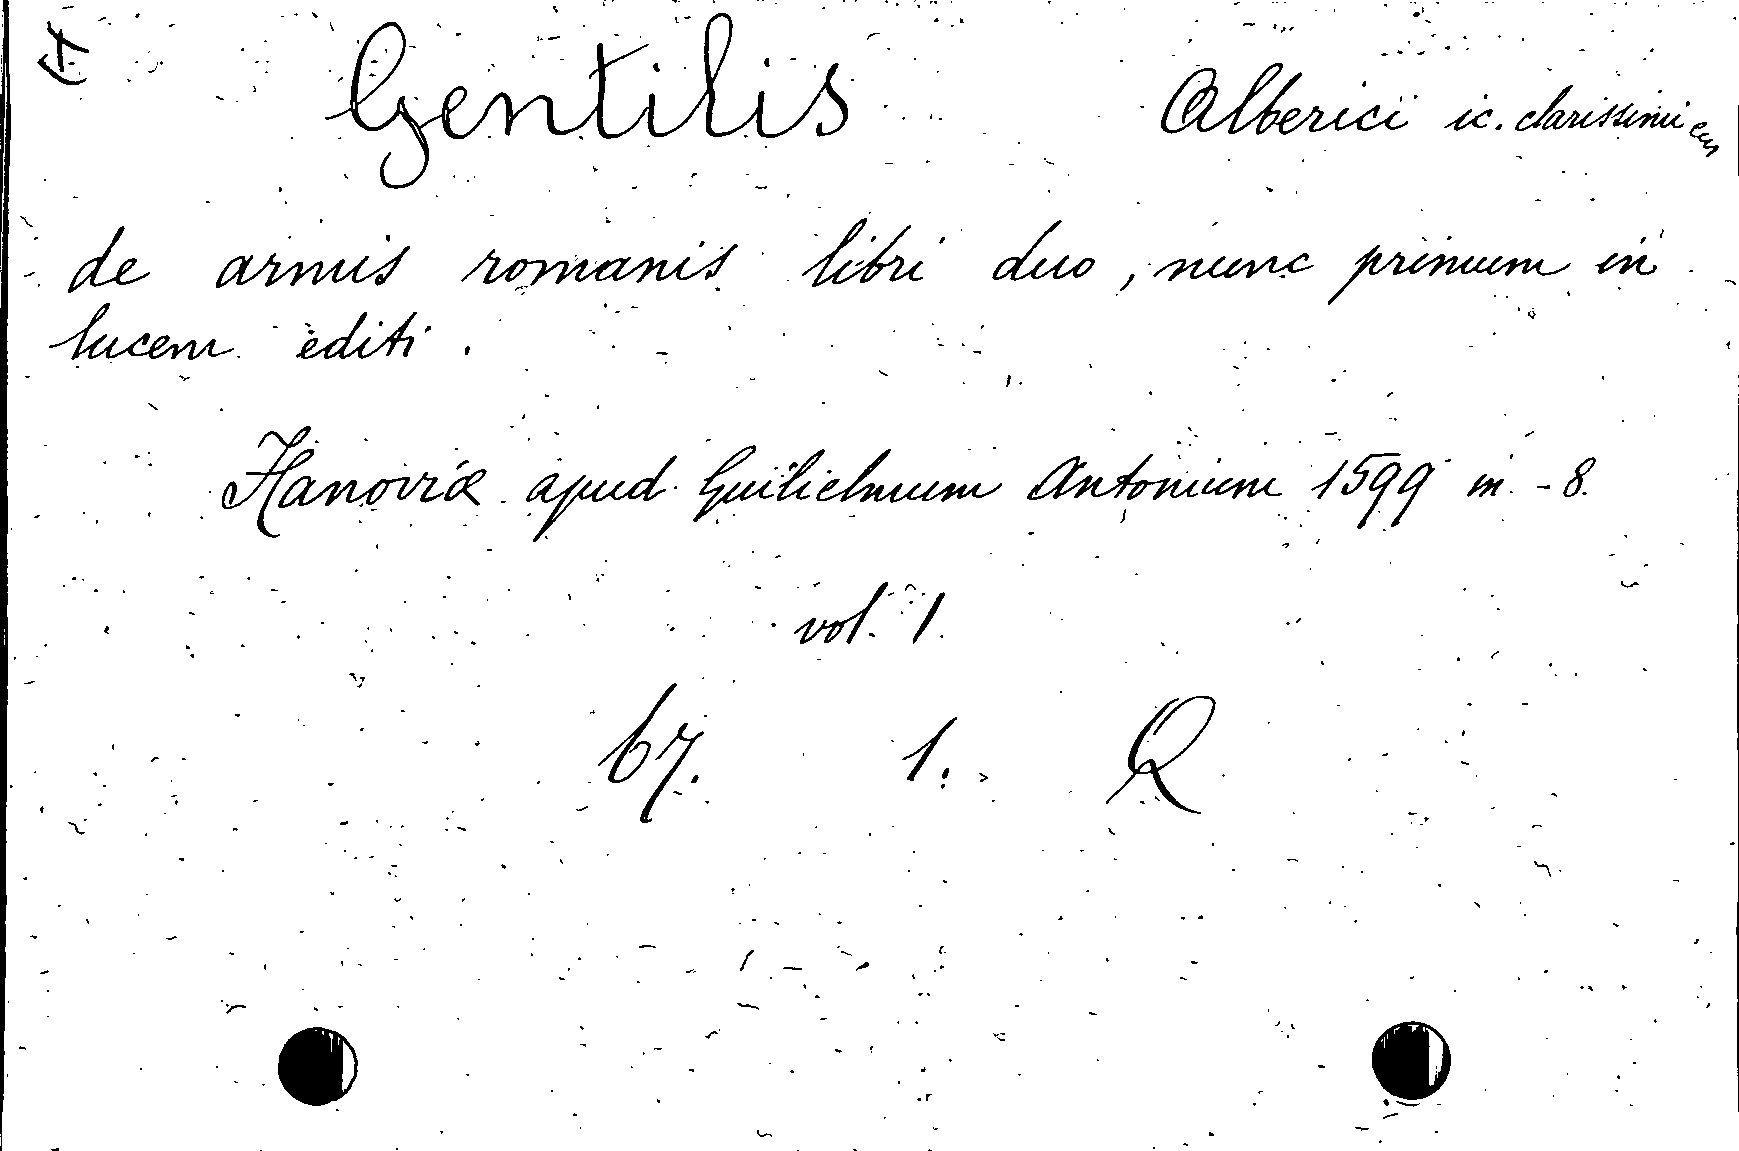 Gentilis Alberici ic. clarissimi
de armis romanis libri duo, nunc primum in
lucem editi.
Hanoviæ apud Guilielmum Antonium 1599 in-8.
vol. 1.
67. 1. Q